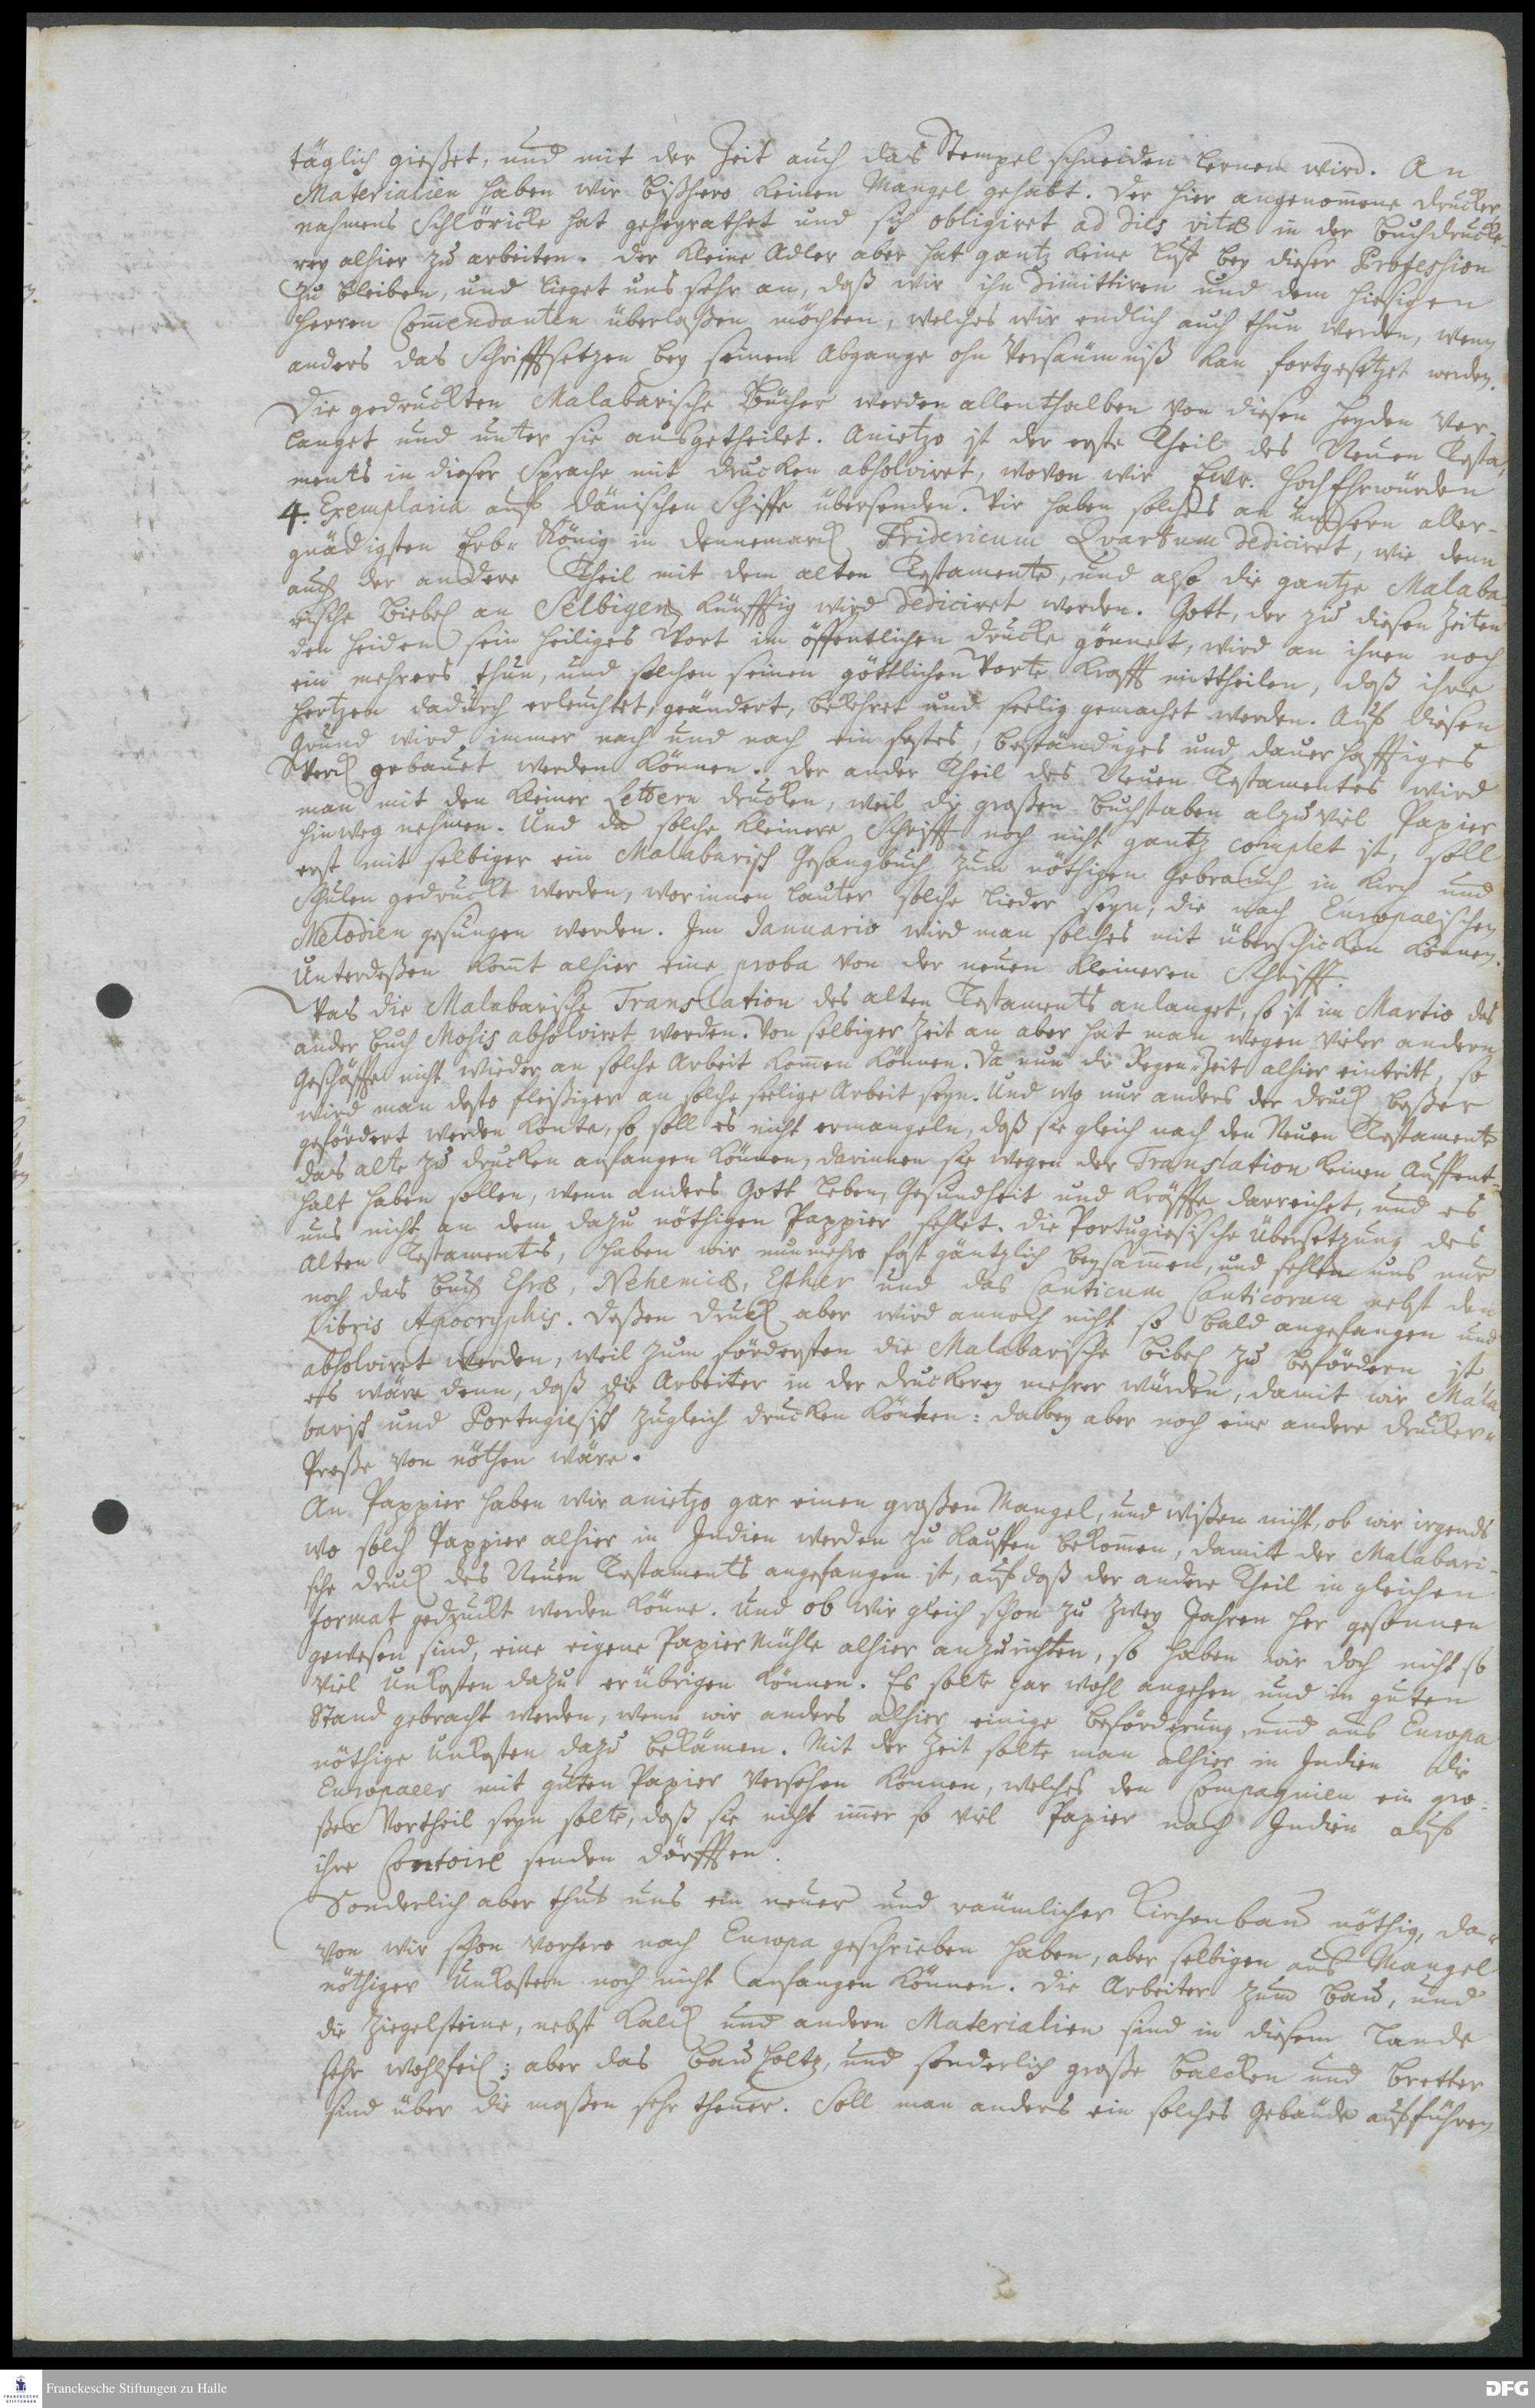 täglich gießet, und mit der Zeit auch das Stempel schneiden lernen wird. An
Materialien haben wir bißhero keinen Mangel gehabt. Der hier angenom̄ene Drucker
nahmens Schlöricke hat geheyrathet und sich obligiret ad dies vitæ in der Buchdrucke-
rey alhier zu arbeiten. Der kleine Adler aber hat gantz keine Lust bey dieser Profession
zu bleiben, und lieget uns sehr an, daß wir ihn dimittiren und dem hiesigen
Herren Com̄endanten überlaßen möchten, welches wir endlich auch thun werden, wenn
anders das Schrifftsetzen bey seinem Abgange ohn Versäumniß kan fortgesetzet werden.
Die gedruckten Malabarische Bücher werden allenthalben von diesen Heyden ver-
langet und unter sie ausgetheilet. Anietzo ist der erste Theil des Neuen Testa-
ments in dieser Sprache mit drucken absolviret, wovon wir Ewr. HochEhrwürden
4. Exemplaria aufs Dänischen Schiffe übersenden. Wir haben solches an unsern aller-
gnädigsten Erb-König in Dennemarck Fridericum Qvartum dediciret, wie denn
auch der andere Theil mit dem alten Testamente, und also die gantze Malaba-
rische Biebel an Selbigen künfftig wird dediciret werden. Gott, der zu diesen Zeiten
den Heiden sein heiliges Wort im öffentlichen Drucke gönnet, wird an ihnen noch
ein mehrers thun, und solchen seinen göttlichen Worte Krafft mittheilen, daß ihre
Hertzen dadurch erleuchtet, geändert, bekehret und seelig gemachet werden. Auf diesen
Grund wird immer nach und nach ein festes, beständiges und dauerhafftiges
Werck gebauet werden können. Der ander Theil des Neuen Testamentes wird
man mit den kleiner Lettern drucken, weil die großen Buchstaben alzuviel Papier
hinweg nehmen. Und da solche kleinere Schrifft noch nicht gantz complet ist, soll
erst mit selbiger ein Malabarisch Gesangbuch zum nöthigen Gebrauch in Kirch und
Schulen gedruckt werden, worinnen lauter solche Lieder seyn, die nach Europaeischen
Melodien gesungen werden. Im Januario wird man solches mit überschicken können.
Unterdeßen kom̄t alhier eine proba von der neuen kleineren Schrifft.
Was die Malabarische Translation des alten Testaments anlanget, so ist im Martio das
ander Buch Mosis absolviret worden. Von selbiger Zeit an aber hat man wegen vieler andern
Geschäffte nicht wieder an solche Arbeit kom̄en können. Da nun die Regen-Zeit alhier eintritt, so
wird man desto fleißiger an solche seelige Arbeit seyn. Und wo nur anders der Druck beßer
gefördert werden könte, so soll es nicht ermangeln, daß sie gleich nach den Neuen Testamente
das alte zu drucken anfangen können, darinnen sie wegen der Translation keinen Auffent-
halt haben sollen, wenn anders Gott Leben, Gesundheit und Kräffte darreichet, und es
uns nicht an dem dazu nöthigen Pappier fehlet. Die Portugiesische Übersetzung des
Alten Testaments, haben wir nunmehro fast gäntzlich beysam̄en, und fehlen uns nur
noch das Buch Esræ, Nehemiæ, Esther und das Canticum Canticorum nebst den
Libris Apocryphis. Deßen Druck aber wird annoch nicht so bald angefangen und
absolviret werden, weil zum fördersten die Malabarische Bibel zu befördern ist
es wäre denn, daß die Arbeiter in der Druckerey mehrer würden, damit wir Mala-
barisch und Portugiesisch zugleich drucken könten: dabey aber noch eine andere Drucker-
Preße von nöthen wäre.
An Pappier haben wir anietzo gar einen großen Mangel, und wißen nicht, ob wir irgends
wo solch Pappier alhier in Indien werden zu kauffen bekom̄en, damit der Malabari-
sche Druck des Neuen Testaments angefangen ist, auf daß der andere Theil in gleichen
format gedruckt werden könne. Und ob wir gleich schon zu zwey Jahren her gesonnen
gewesen sind, eine eigene PapierMühle alhier anzurichten, so haben wir doch nicht so
viel Unkosten dazu erübrigen können. Es solte gar wohl angehen und in guten
Stand gebracht werden, wenn wir anders alhier einige Beförderung und aus Europa
nöthige Unkosten dazu bekämen. Mit der Zeit solte man alhier in Indien die
Europaeer mit guten Papier versehen können, welches den Compagnien ein gro-
ßer Vortheil seyn solte, daß sie nicht im̄er so viel Papier nach Indien auf
ihre Contoire senden dörfften.
Sonderlich aber thut uns ein neuer und räumlicher Kirchenbau nöthig, da-
von wir schon vorhero nach Europa geschrieben haben, aber selbigen aus Mangel
nöthiger Unkosten noch nicht anfangen können. Die Arbeiter zum Bau, und
die Ziegelsteine, nebst Kalck und andern Materialien sind in diesem Lande
sehr wohlfeil; aber das Bauholtz, und sonderlich große Balcken und Bretter
sind über die maßen sehr theuer. Soll man anders ein solches Gebäude aufführen
Franckesche Stiftungen zu Halle
DFG